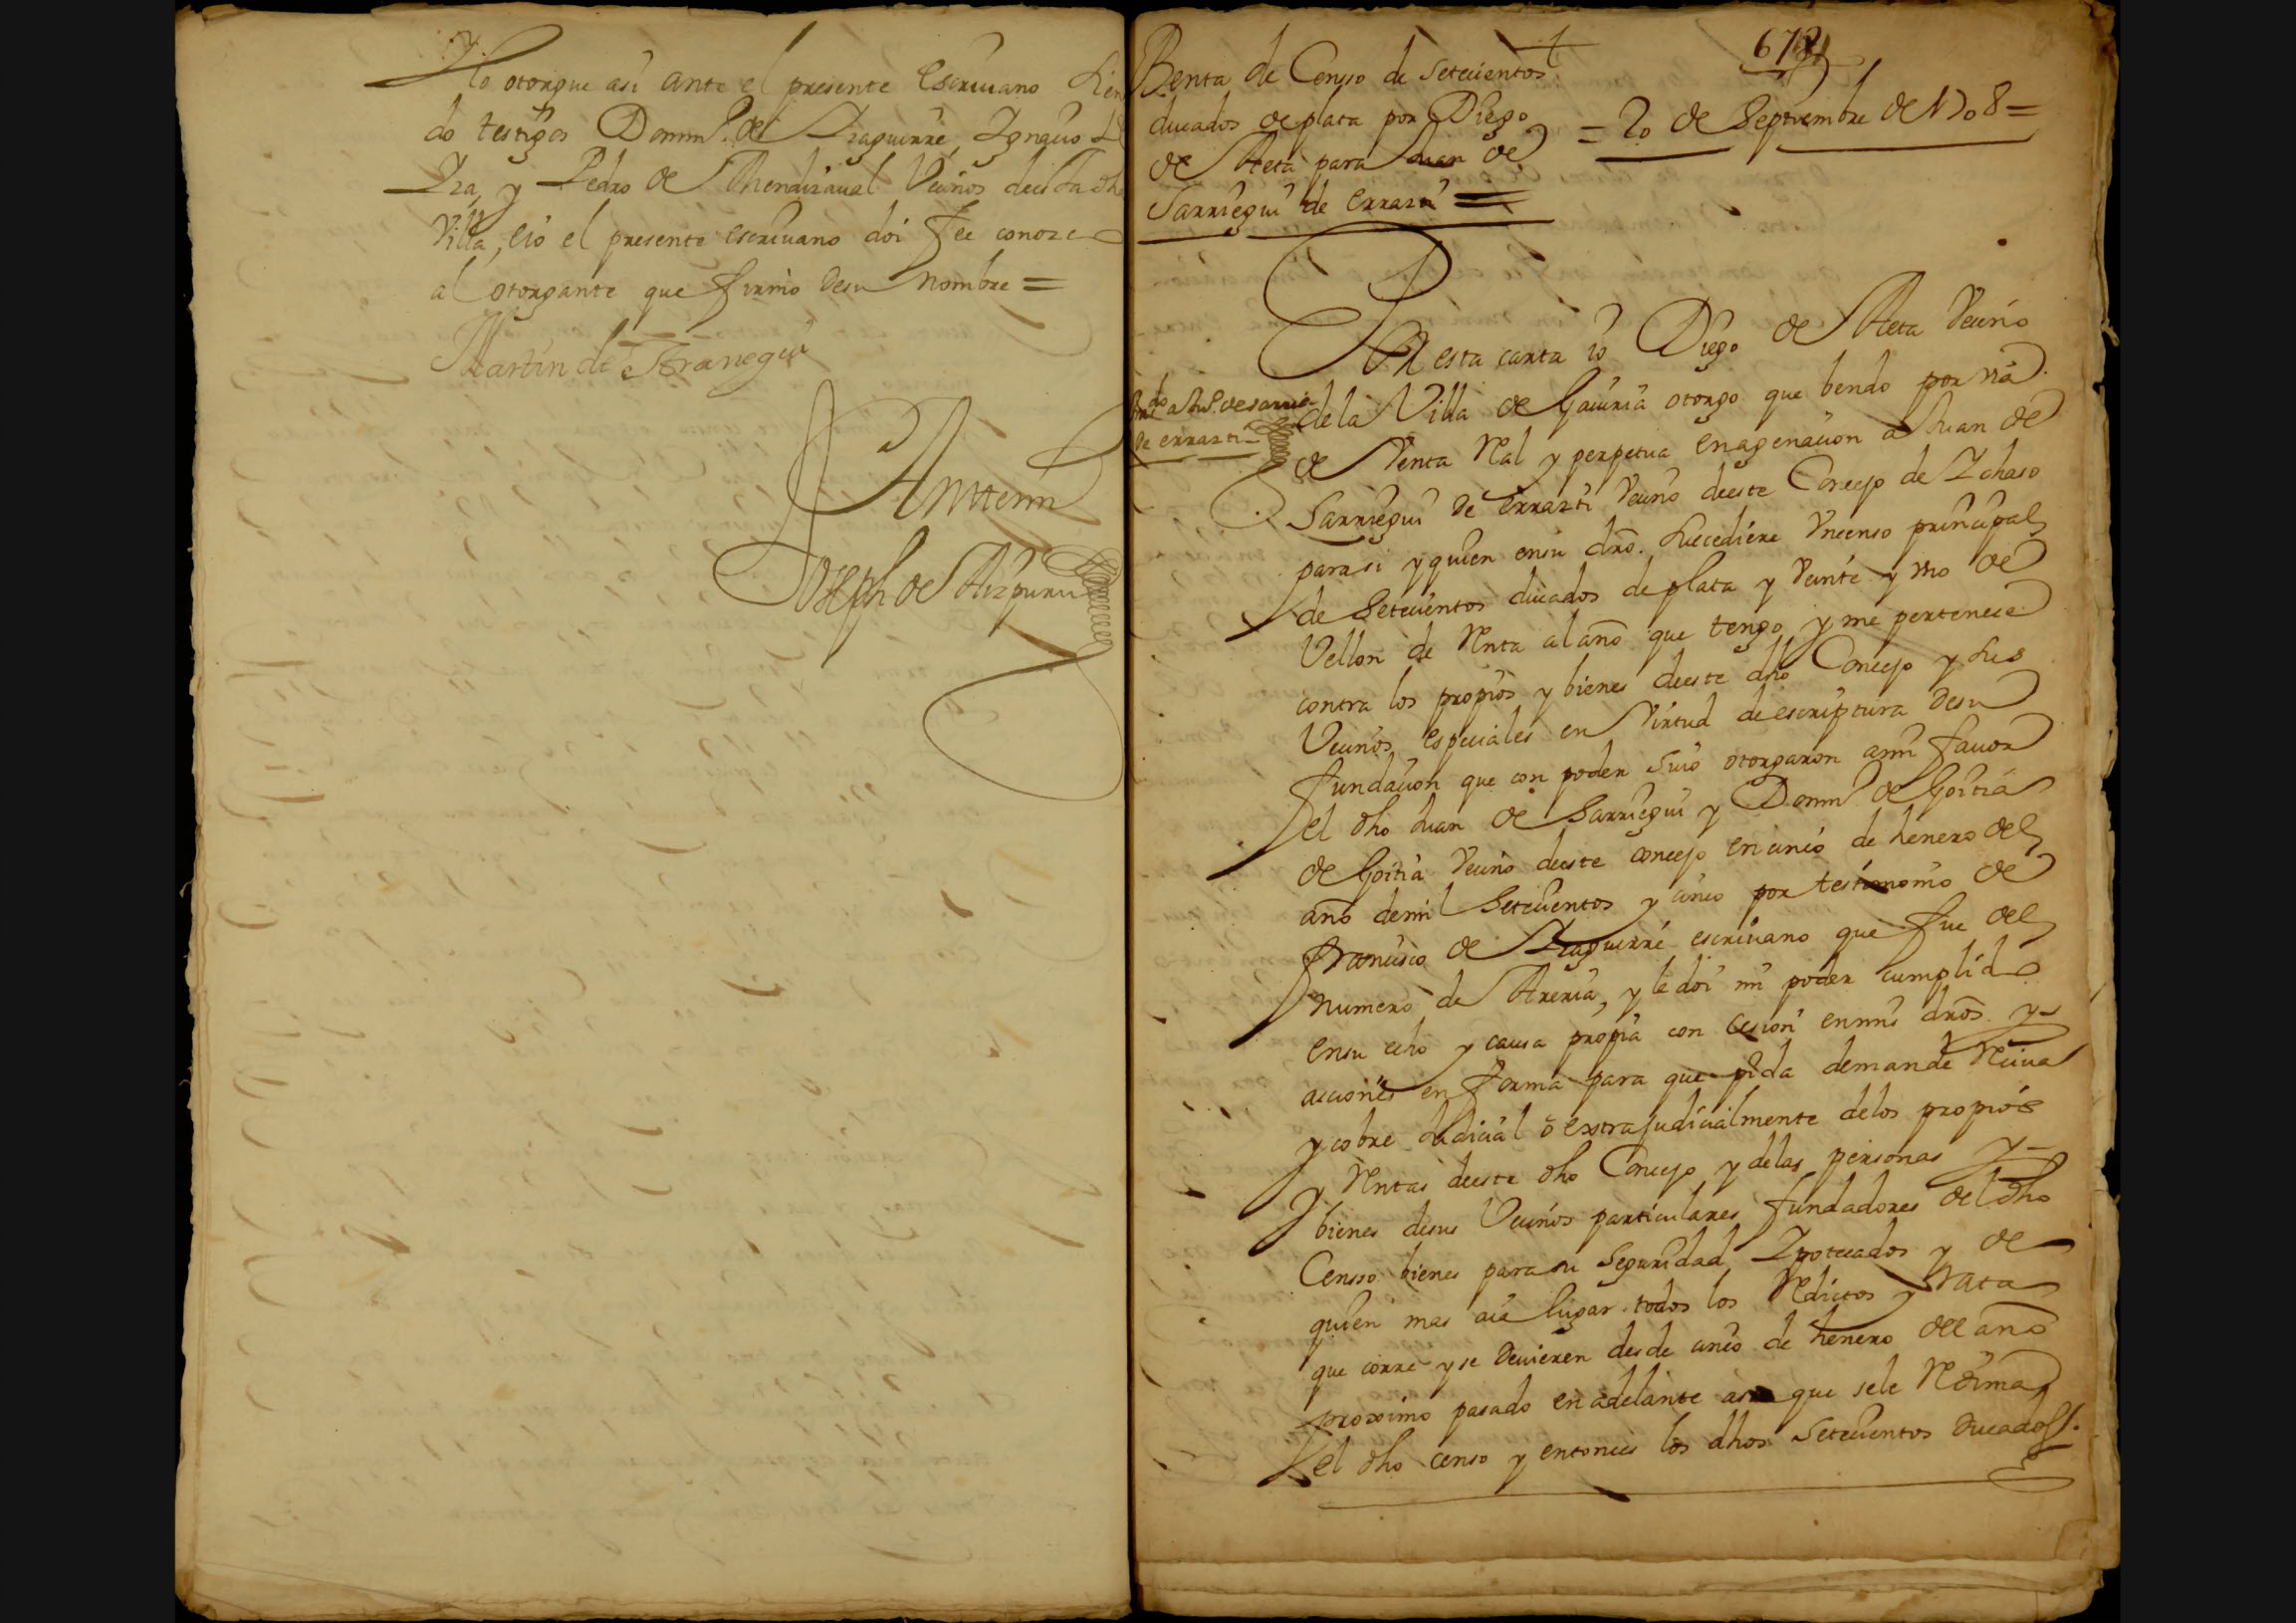 Ylo otorgue asi ante el presente Escriuano Sien
do testigos Domin.º de Yraguirre, Ygnacio de
Yza, y Pedro de Mendizaual Vecinos deesta dha
Villa, eio el presente escriuano doi fee conozco
al otorgante que firmo desu nombre =
Martin de Aranegui
Antemi
Joseph de Aizpuru
678
Benta de Censso de setecientos
ducados de plata por Diego
de Aeta para Juan de
Sarriegui de errazti =
= 20 de Septiembre de 1708 =
En esta carta io Diego de Aeta Vecino
dela Villa de Gauiria otorgo que bendo por via
de Venta Real y perpetua enagenacion a Juan de
Sarriegui de Errazti Vecino deeste Concejo de Ychaso
para si y quien ensu dro. Sucediere Vncenso principal
de Setecientos ducados de plata y Veinte y vno de
Vellon de Renta al año que tengo y me pertenece
contra los propios y bienes deeste dho Concejo y sus
Vecinos especiales en Virtud de escriptura desu
fundacion que con poder suio otorgaron ami fauor
el dho Juan de Sarriegui y Domin.º de Goitia
de Goitia Vecino deeste concejo en cinco de henero del
año demil Setecientos y cinco por testimonio de
Francisco de Yraguirre escriuano que fue del
numero de Areria, y le doi mi poder cumplido
ensu echo y causa propia con cesion enmis dros y
acciones en forma para que pida demande Reciua
y cobre Judicial o extrajudicialmente delos propios
y Rentas deeste dho Concejo y delas personas y
bienes desus Vecinos particulares fundadores del dho
Censso bienes para su Seguridad Ypotecados y de
quien mas aia lugar todos los Reditos y rata
que corre y se deuieren desde cinco de henero del año
proximo pasado en adelante asta que sele Redima
el dho censo y entonces los dhos Setecientos ducados